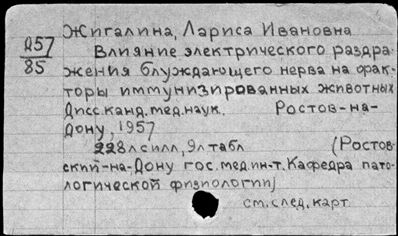 Жигалина, Лариса Ивановна
Д57
85
Влияние электрического раздра-
жения блуждающего нерва на фак-
торы иммунизированных животных
Дисс.канд.мед.наук. Ростов-на-
Дону, 1957
228л с илл, 9л табл (Ростов-
ский-на-Дону гос.мед.ин-т. Кафедра пато-
логической физиологии)
см.след.карт.